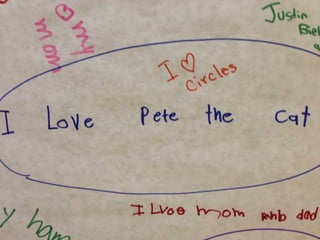 my
mom
Justin
I ♡
circles
I Love Pete the Cat
I Lvoe mom ahb dad
y ham